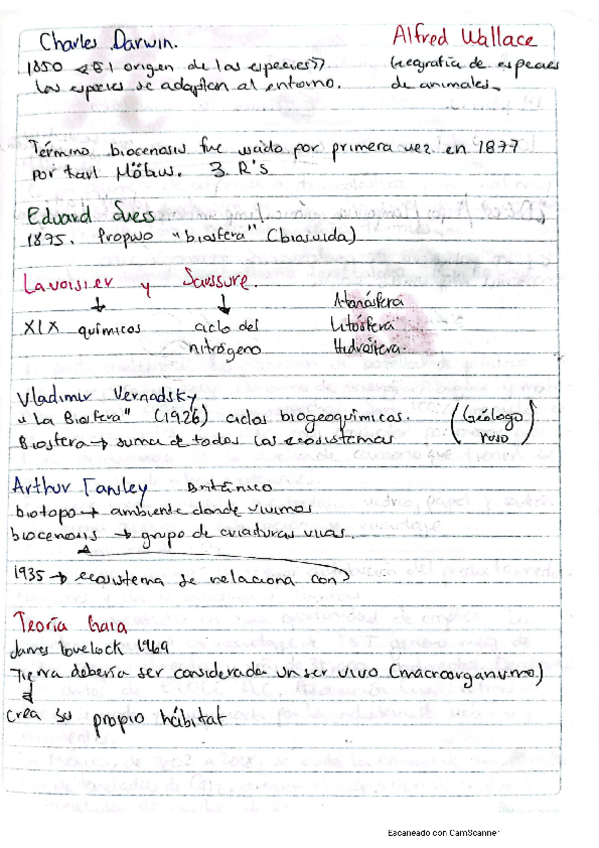 Charles Darwin.
Alfred Wallace
1850 <<El origen de las especies>>
Las especies se adaptan al entorno.
Geografía de especies
de animales.
Término biocenosis fue usado por primera vez en 1877
por Karl Möbius. 3. R's
Eduard Suess
1875. Propuso "biosfera" (bios:vida)
Lavoisier y Saussure.
XIX químicos
ciclo del
nitrógeno
Atmósfera
Litósfera
Hidrósfera.
Vladimir Vernadsky
"La Biosfera" (1926) ciclos biogeoquímicos.
Biosfera → suma de todos los ecosistemas
(Geólogo
ruso)
Arthur Tansley Británico
biotopo → ambiente donde vivimos
biocenosis → grupo de criaturas vivas.
1935 → ecosistema se relaciona con
Teoría Gaia
James Lovelock 1969
Tierra debería ser considerada un ser vivo (macroorganismo)
crea su propio hábitat
Escaneado con CamScanner